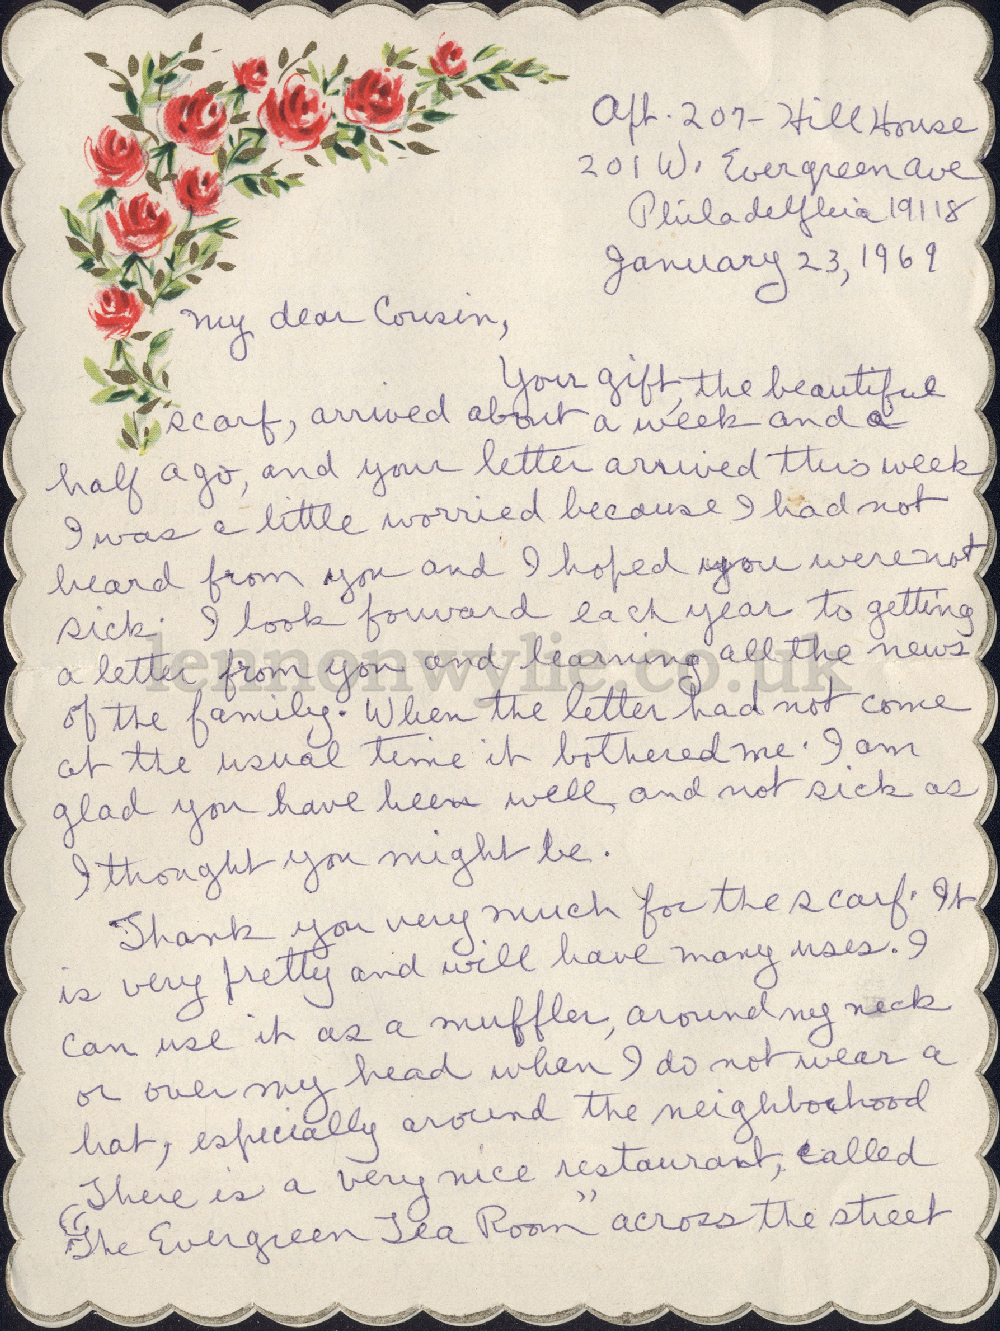 Apt. 207- Hill House
201 W. Evergreen Ave
Philadelphia 19118
January 23, 1969
My dear Cousin,
Your gift, the beautiful
scarf, arrived about a week and a
half ago, and your letter arrived this week
I was a little worried because I had not
heard from you and I hoped you were not
sick. I look forward each year to getting
a letter from you and learning all the news
lennonwylie.co.uk
of the family. When the letter had not come
at the usual time it bothered me. I am
glad you have been well, and not sick as
I thought you might be.
Thank you very much for the scarf. It
is very pretty and will have many uses. I
can use it as a muffler, around my neck
or over my head when I do not wear a
hat, especially around the neighborhood
There is a very nice restaurant, called
"The Evergreen Tea Room" across the street